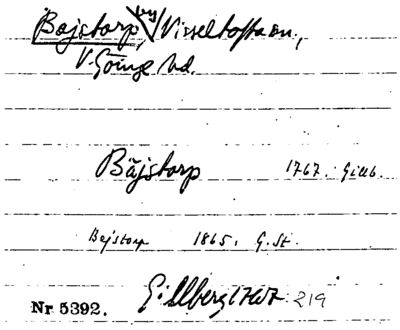 Bajstorp, by Visseltofta sn.,
V. Göinge hd.
Bäjstorp 1767. Gillb.
Bajstorp 1865. G. St.
Nr 5392. Gillberg 1767 219